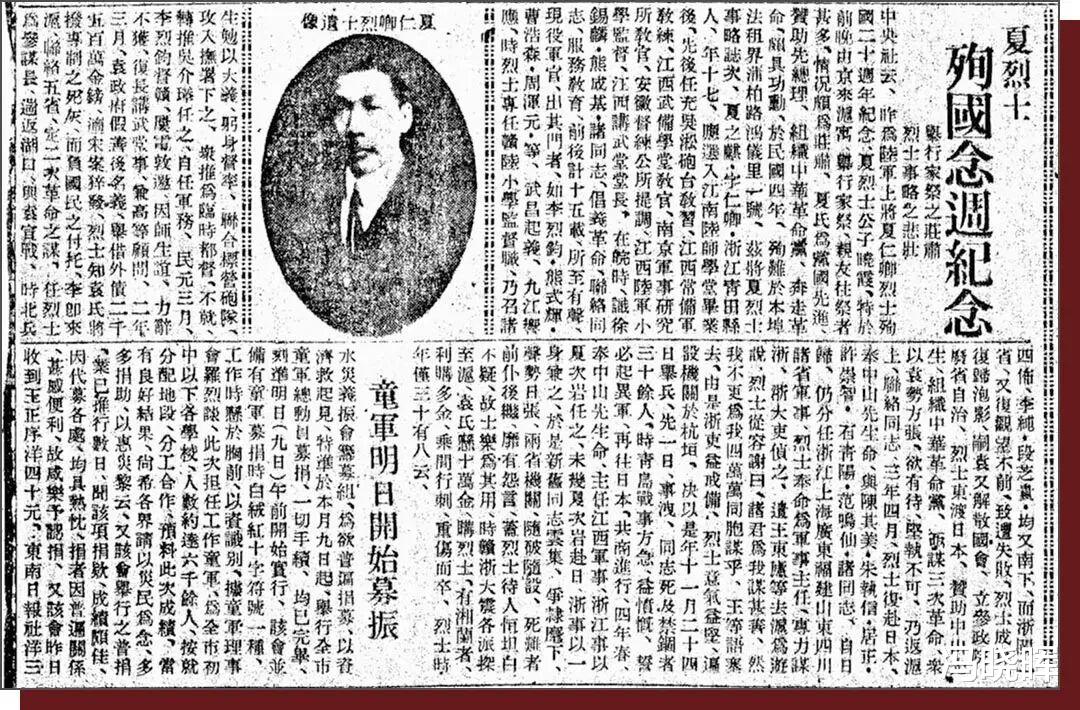 夏烈士
殉國念週紀念
舉行家祭之莊肅
烈士事略之悲壯
中央社云、昨為陸軍上將夏仁卿烈士殉
國二十週年紀念、夏烈士公子曉霞、特於
前晚由京來滬寓、舉行家祭、親友往祭者
甚多、情況頗為莊肅、夏氏為黨國先進、
贊助先總理、組織中華革命黨、奔走革
命、頗具功勳、於民國四年、殉難於本埠
法租界浦柏路鴻儀里一號、茲將夏烈士
事略誌次、夏之麒、字仁卿、浙江青田縣
人、年十七、應選入江南陸師學堂畢業
後、先後任充吳淞砲台教習、江西常備軍
教練、江西武備學堂敎官、南京軍事研究
所敎官、安徽督練公所提調、江西陸軍小
學監督、江西講武堂堂長、在皖時、識徐
錫麟、熊成基、諸同志、倡義革命、聯絡同
志、服務敎育、前後計十五載、所至有聲、
現役軍官、出其門者、如李烈鈞、熊式輝、
曹浩森、周渾元等、武昌起義、九江響
應、時烈士專任贛陸小學監督職、乃召諸
夏仁卿烈士遺像
生勉以大義、躬身督率、聯合標營砲隊、
攻入撫署下之、衆推為臨時都督、不就、
轉推吳介璋任之、自任軍務、民元三月、
李烈鈞督贛、屢電敦邀、因師生誼、力辭
不獲、復長講武堂事、兼高等顧問、二年
三月、袁政府假善後名義、舉借外債二千
五百萬金鎊、滴宋案猝發、烈士知袁氏將
撥專制之死灰、而負國民之付托、李卽來
滬、聯絡五省、定二次革命之謀、任烈士
為參謀長、遄返湖口、興袁宣戰、時北兵
四佈、李純、段芝貴、均又南下、而浙閩
省、又復觀望不前、致遭失敗、烈士共和
復歸泡影、嗣袁又解散國會、立參政院、
廢省自治、烈士東渡日本、贊助中山先
生、組織中華革命黨、張謀三次革命、衆
以袁勢方張、欲有待、堅執不可、乃返滬
上、聯絡同志、三年四月、烈士復赴日本、
奉中山先生命、與陳其美、朱執信、居正、
許崇智、有靑陽、范鳴仙、諸同志、自日
歸、仍分任浙江上海廣東福建山東四川
諸省軍事、烈士奉命為軍事主任、專力謀
浙、浙大吏偵之、遣王東應等去滬、為游
說、烈士從容謝曰、諸君為我謀甚善、然
我不更爲我四萬萬同胞謀乎、王等語塞
去、由是浙東益戒備、烈士意氣益堅、遍
設機關於杭垣、決以是年十一月二十四
日舉兵、先一日事洩、同志死及禁錮者
三十餘人、時靑島戰事方急、益憤慨、誓
必起異軍、再往日本、共商進行、四年春、
奉中山先生命、主任江西軍事、浙江事以
夏次岩任之、未幾夏次岩赴日、浙事以一
身兼之、於是新舊同志雲集、爭隸麾下、
聲勢日張、兩省機關、隨破隨設、死難者
前仆後繼、靡有怨言、蓋烈士待人恒坦白
不疑、故士樂為其用、時贛浙大震、各派探
至滬、袁氏懸十萬金購烈士、有湘蘭者、
利購多金、乘間行刺、重傷而卒、烈士時
年僅三十有八云、
童軍明日開始募振
水災義振會籌募組、為欲普遍捐募、以資
濟救起見、特準於本月九日起、舉行全市
童軍總動員募捐、一切手續、均已完畢、
刻準明日（九日）午前開始實行、該會並
備有童軍募捐時白絨紅十字符號一種、
工作時懸於胸前、以資識別、據童軍理事
會羅烈談、此次担任工作童軍、為全市初
中以下各學校、人數約達六千餘人、按就
分配地段、分工合作、預料此次成績、當
有良好結果、尙希各界請以災民為念、多
多捐助、以惠災黎云、又該會舉行之普捐
業已推行數日、聞該項捐欵、成績頗佳、
因代募各處、均具熱忱、捐者因普遍關係
、甚感便利、故咸樂予認捐、又該會昨日
收到王正序洋四十元、東南日報社洋三
冯晓晖